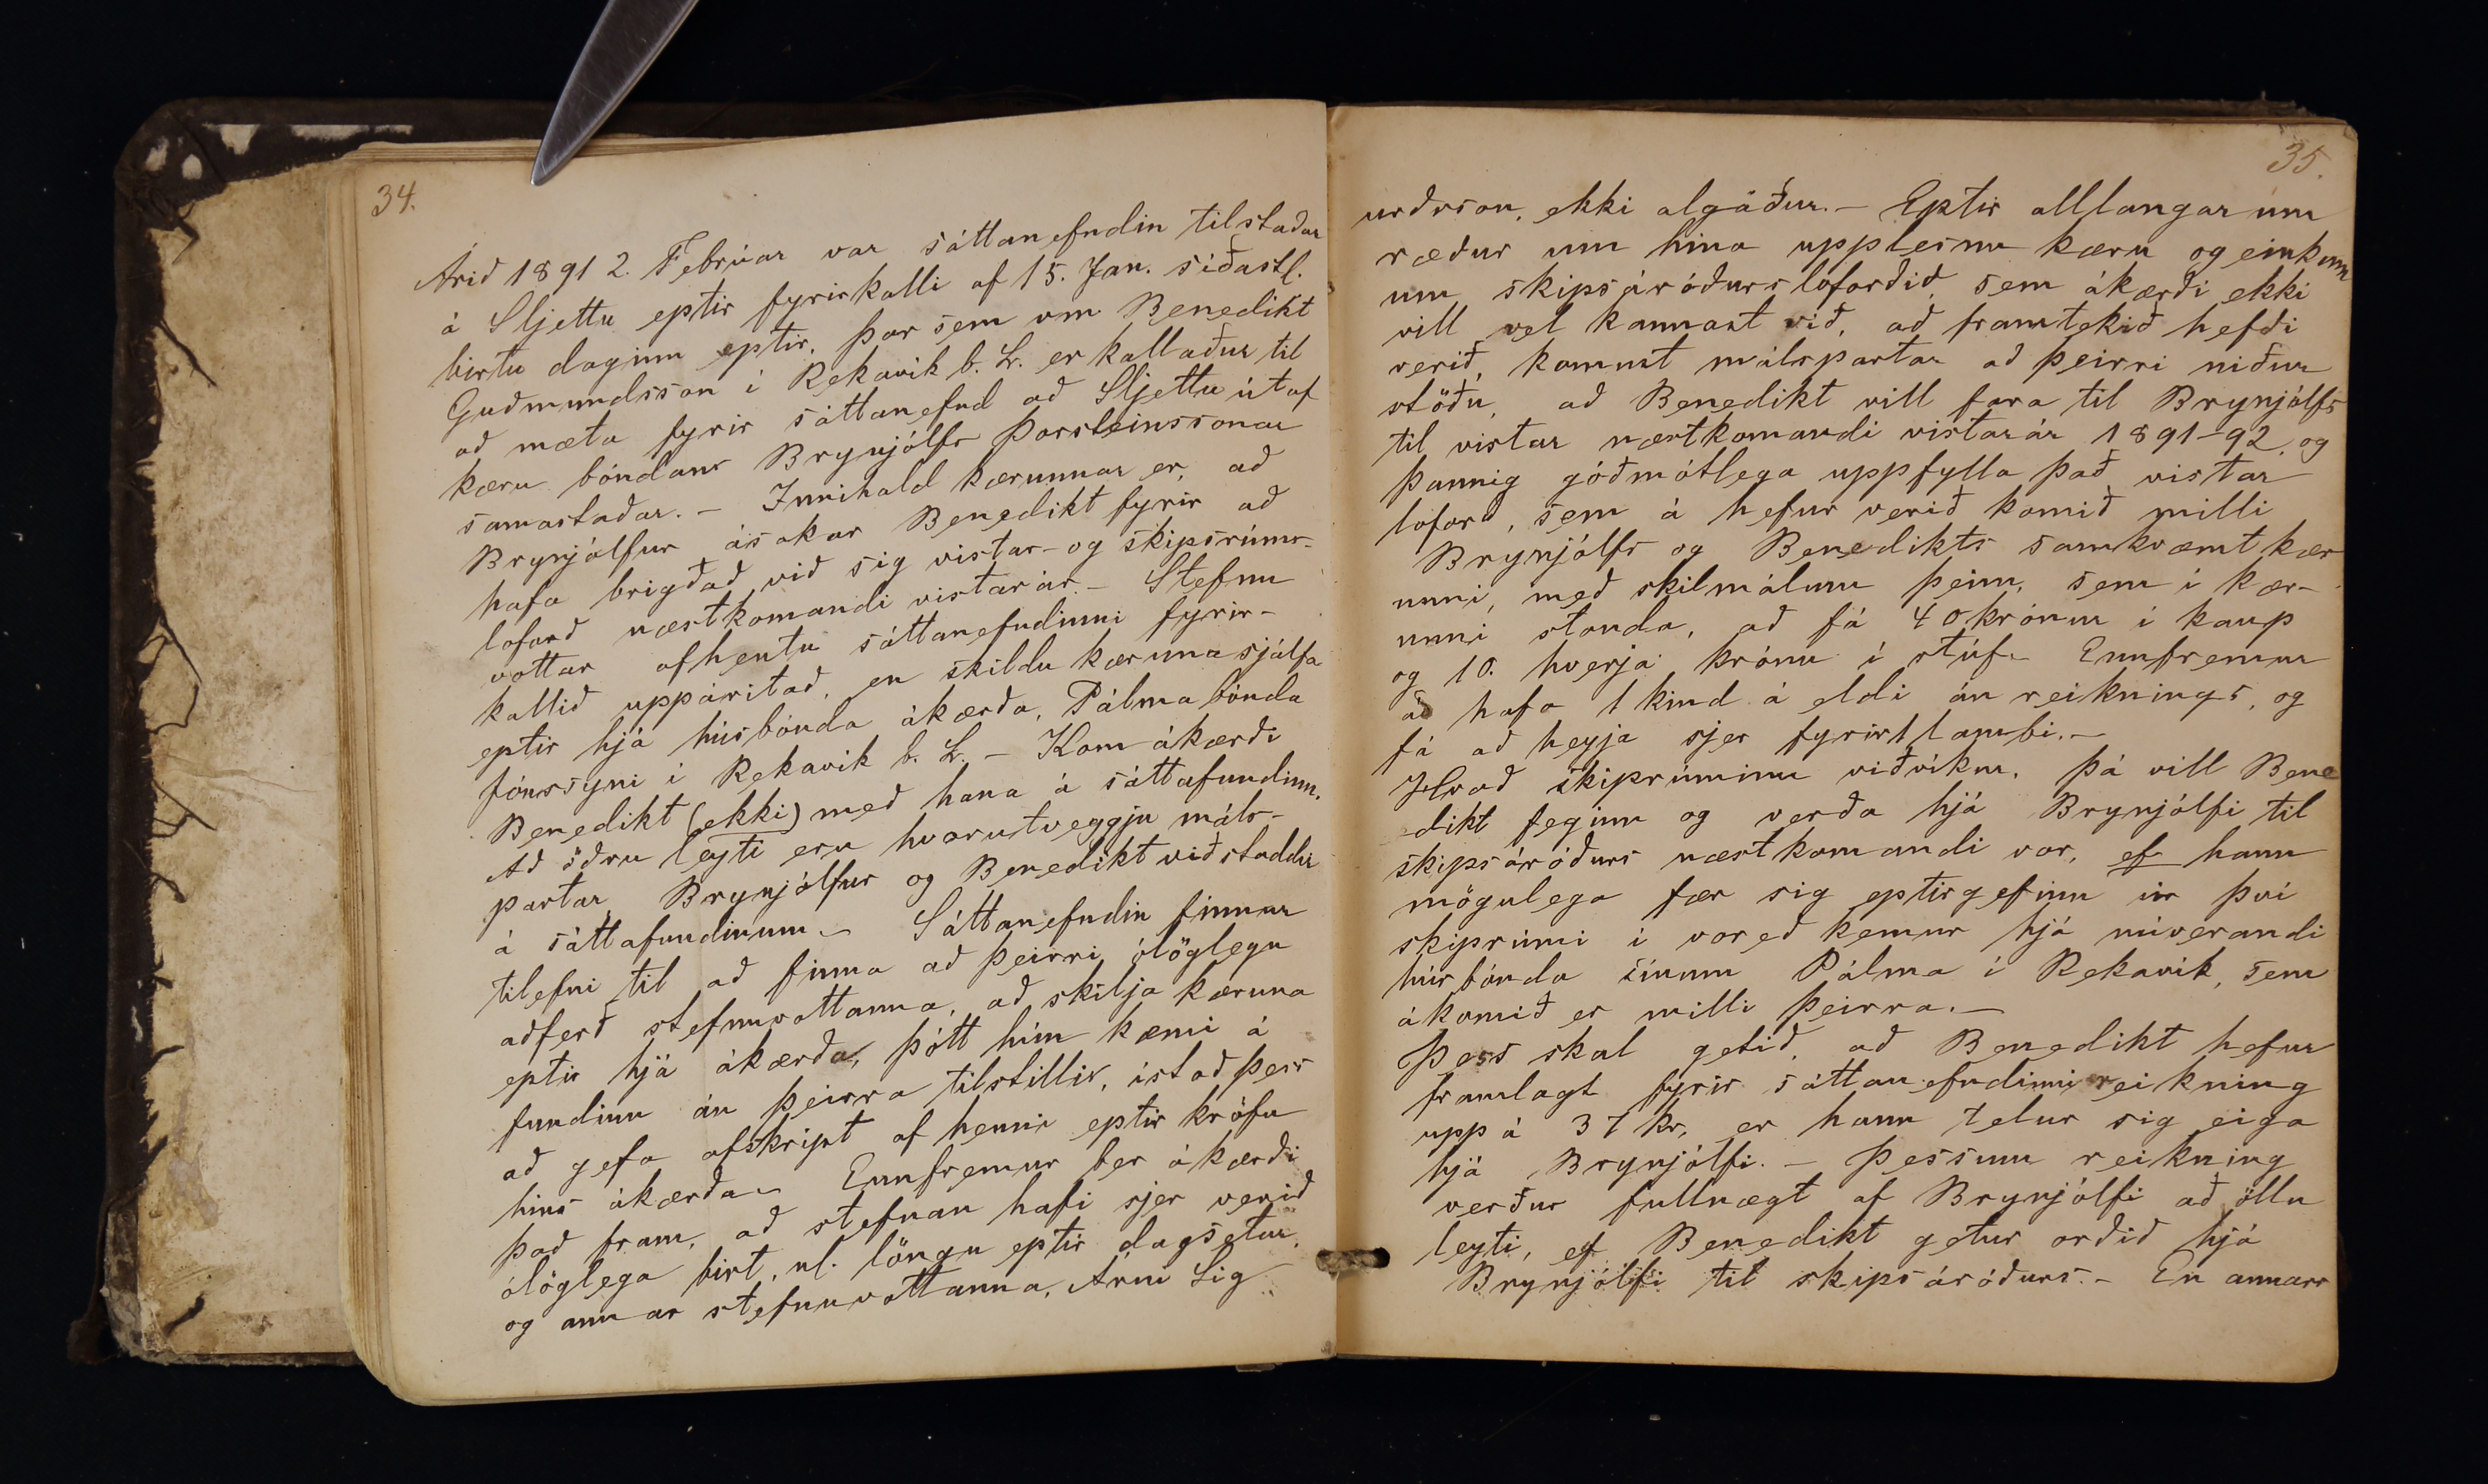 34.
Árið 1891 2. Febrúar var sáttanefndin tilstaðar
á Sljettu eptir fyrirkalli af 15. Jan. síðastl.
birtu daginn eptir, þar sem vm Benedikt
Guðmundsson í Rekavík b. L. er kallaður til
að mæta fyrir sáttanefnd að Sljettu útaf
kæru bóndans Brynjólfs Þorsteinssonar
samastaðar. - Innihald kærunnar er, að
Brynjólfur ásakar Benedikt fyrir að
hafa brigðað við sig vistar- og skipsrúms-
loforð næstkomandi vistarár. - Stefnu
vottar afhentu sáttanefndinni fyrir-
kallið uppáritað, en skildu kæruna sjálfa
eptir hjá húsbónda ákærða, Pálma bónda
Jónssyni í Rekavík b. L. - Kom ákærði
Benedikt (ekki) með hana á sáttafundinn.
Að öðru leyti eru hvorutveggju máls-
partar Brynjólfur og Benedikt viðstaddir
á sáttafundinum. - Sáttanefndin finnur
tilefni til að finna að þeirri ólöglegu
aðferð stefnuvottanna, að skilja kæruna
eptir hjá ákærða, þótt hún kæmi á
fundinn án þeirra tilstillis, ístað þess
að gefa afskript af henni eptir kröfu
hins ákærða. - Ennfremur ber ákærði
það fram, að stefnan hafi sjer verið
ólöglega birt, nl. löngu eptir dagsetur,
og annar stefnuvottanna, Árni Sig
35.
urðsson, ekki algáður. - Eptir alllangar um
ræður um hina upplesnu kæru og einkum
um skipsáróðursloforðið, sem ákærði ekki
vill vel kannast við, að framtekið hefði
verið, komust málspartar að þeirri niður
stöðu, að Benedikt vill fara til Brynjólfs
til vistar næstkomandi vistarár 1891-92, og
þannig góðmótlega uppfylla það vistar
loforð, sem á hefur verið komið milli
Brynjólfs og Benedikts samkvæmt kær
unni, með skilmálum þeim, sem í kær-
unni standa, að fá 40 krónur í kaup
og 10. hverja krónu í stúf. - Ennfremur
að hafa 1 kind á eldi án reiknings, og
fá að heyja sjer fyrir 1 lambi. -
Hvað skiprúminu viðvíkur, þá vill Bene
dikt feginn og verða hjá Brynjólfi til
skipsáróðurs næstkomandi vor, ef hann
mögulega fær sig eptirgefinn úr því
skiprúmi í vor eð kemur hjá núverandi
húsbónda sínum Pálma í Rekavík, sem
ákomið er milli þeirra. -
Þess skal getið, að Benedikt hefur
framlagt fyrir sáttanefndinni reikning
uppá 37 kr, er hann telur sig eiga
hjá Brynjólfi. - Þessum reikning
verður fullnægt af Brynjólfi að öllu
leyti, ef Benedikt getur orðið hjá
Brynjólfi til skipsáróðurs. - En annars